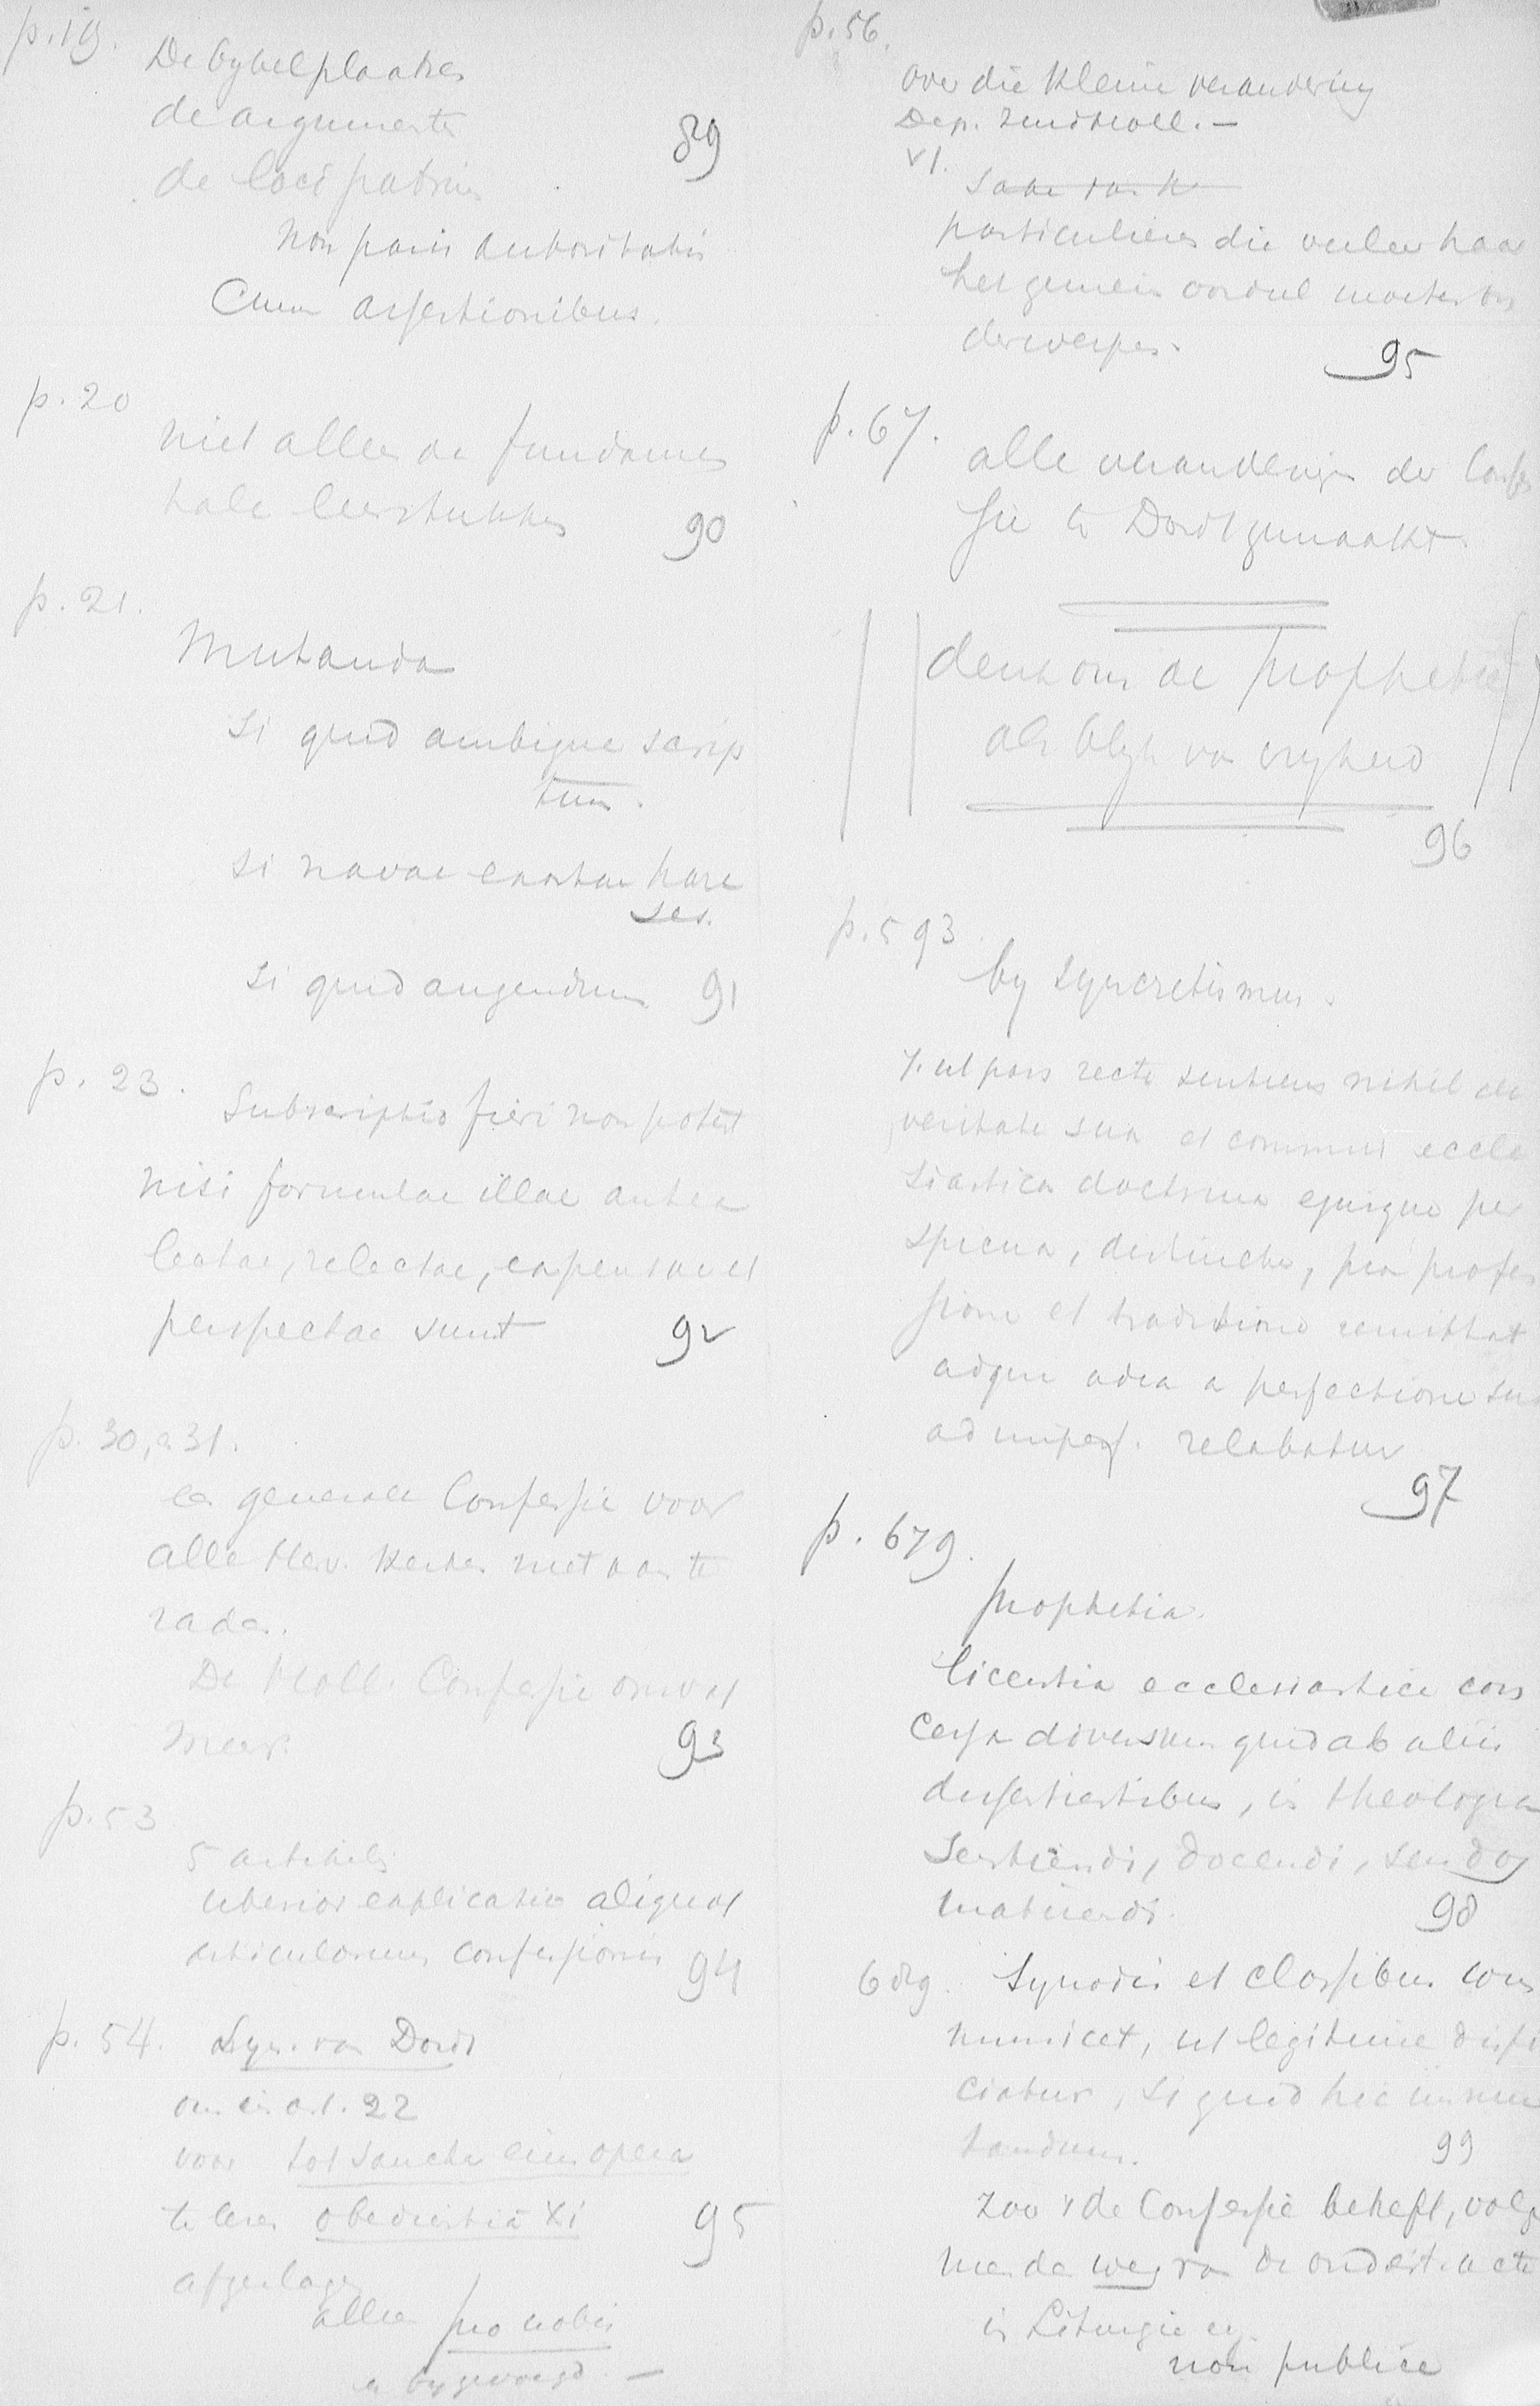 p. 19.
De bybelplaatsen
de argumenten
89
de loci patrum
non paris autoritatis
Cum assertionibus.
p. 20
niet alleen de fundamen
tale leerstukken
90
p. 21.
Mutanda
Si quid ambigue scrip
tum.
si novae exortae haere
ses.
si quid augendum 91
p. 23.
Subscriptio fieri non potest
nisi formulae illae antea
lectae, relectae, expensae et
perspectae sunt 92
p. 30, en 31.
een generale Confessie voor
alle Herv. Kerken niet aan te
raden.
De Holl. Confessie omvat
meer.
93
p. 53
5 artikels
uberior explicatio aliquot
articulorum confessionis 94
p. 54. Syn. van Dordt
om in art. 22
voor tot sancta eius opera
te lezen obedientia Xi 95
afgeslagen
alleen pro nobis
er bygevoegd. —
p. 56.
over die kleine verandering
Dep. Zuidholl. —
VI.
particulieren die veeleer haar
het gemein oordeel moeten on
derwerpen.
95
p. 67.
alle veranderingen der Confes
sie te Dordt gemaakt.
denk om de prophetie
als blyk van vryheid
96
p. 593.
by syncretismus.
ut pars recte sentiens nihil de
veritate sua et communi eccle
siastica doctrina ejusque per
spicua, distincta, pia profes
sione et traditione remittat
adque adeo a perfectione sua
ad imperf. relabatur
97
p. 679.
prophetia.
licentia ecclesiastice con
cessa diversum quid ab aliis
dissentientibus, in theologia
sentiendi, docendi, seu dog
matizandi.
98
689. Synodis et classibus com
municet, ut legitime dispi
ciatur, si quid hic immu
tandum.
99
zoo 't de Confessie betreft, volg
men de weg van de onderst. acte
in Liturgie en
non publice